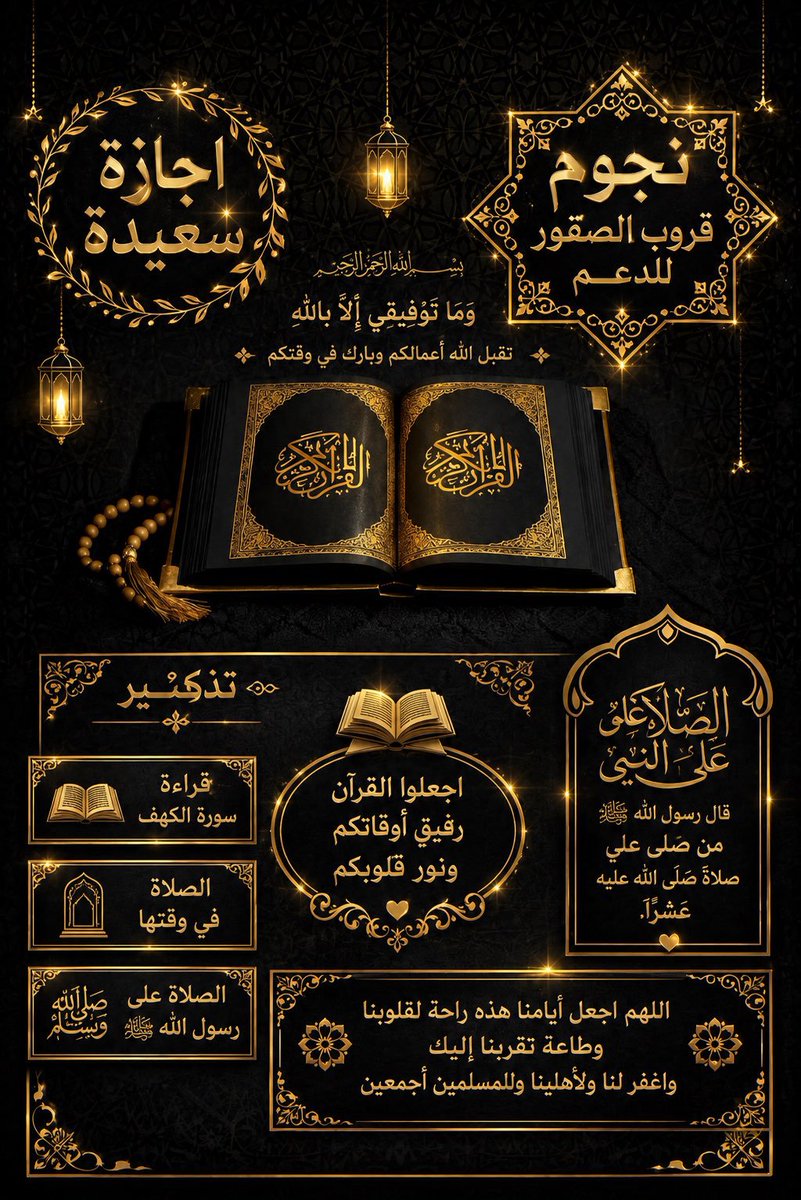 اجازة
سعيدة
نجوم
قروب الصقور
للدعم
بسم الله الرحمن الرحيم
وَمَا تَوْفِيقِي إِلَّا بالله
تقبل الله أعمالكم وبارك في وقتكم
القرآن الكريم
القرآن الكريم
تذكير
قراءة
سورة الكهف
الصلاة
في وقتها
الصلاة على
رسول الله ﷺ
صلى الله
وسلم
اجعلوا القرآن
رفيق أوقاتكم
ونور قلوبكم
على النبي
قال رسول الله ﷺ
من صَلى علي
صلاةً صَلَى الله عليه
عَشرًا.
اللهم اجعل أيامنا هذه راحة لقلوبنا
وطاعة تقربنا إليك
واغفر لنا ولأهلينا وللمسلمين أجمعين